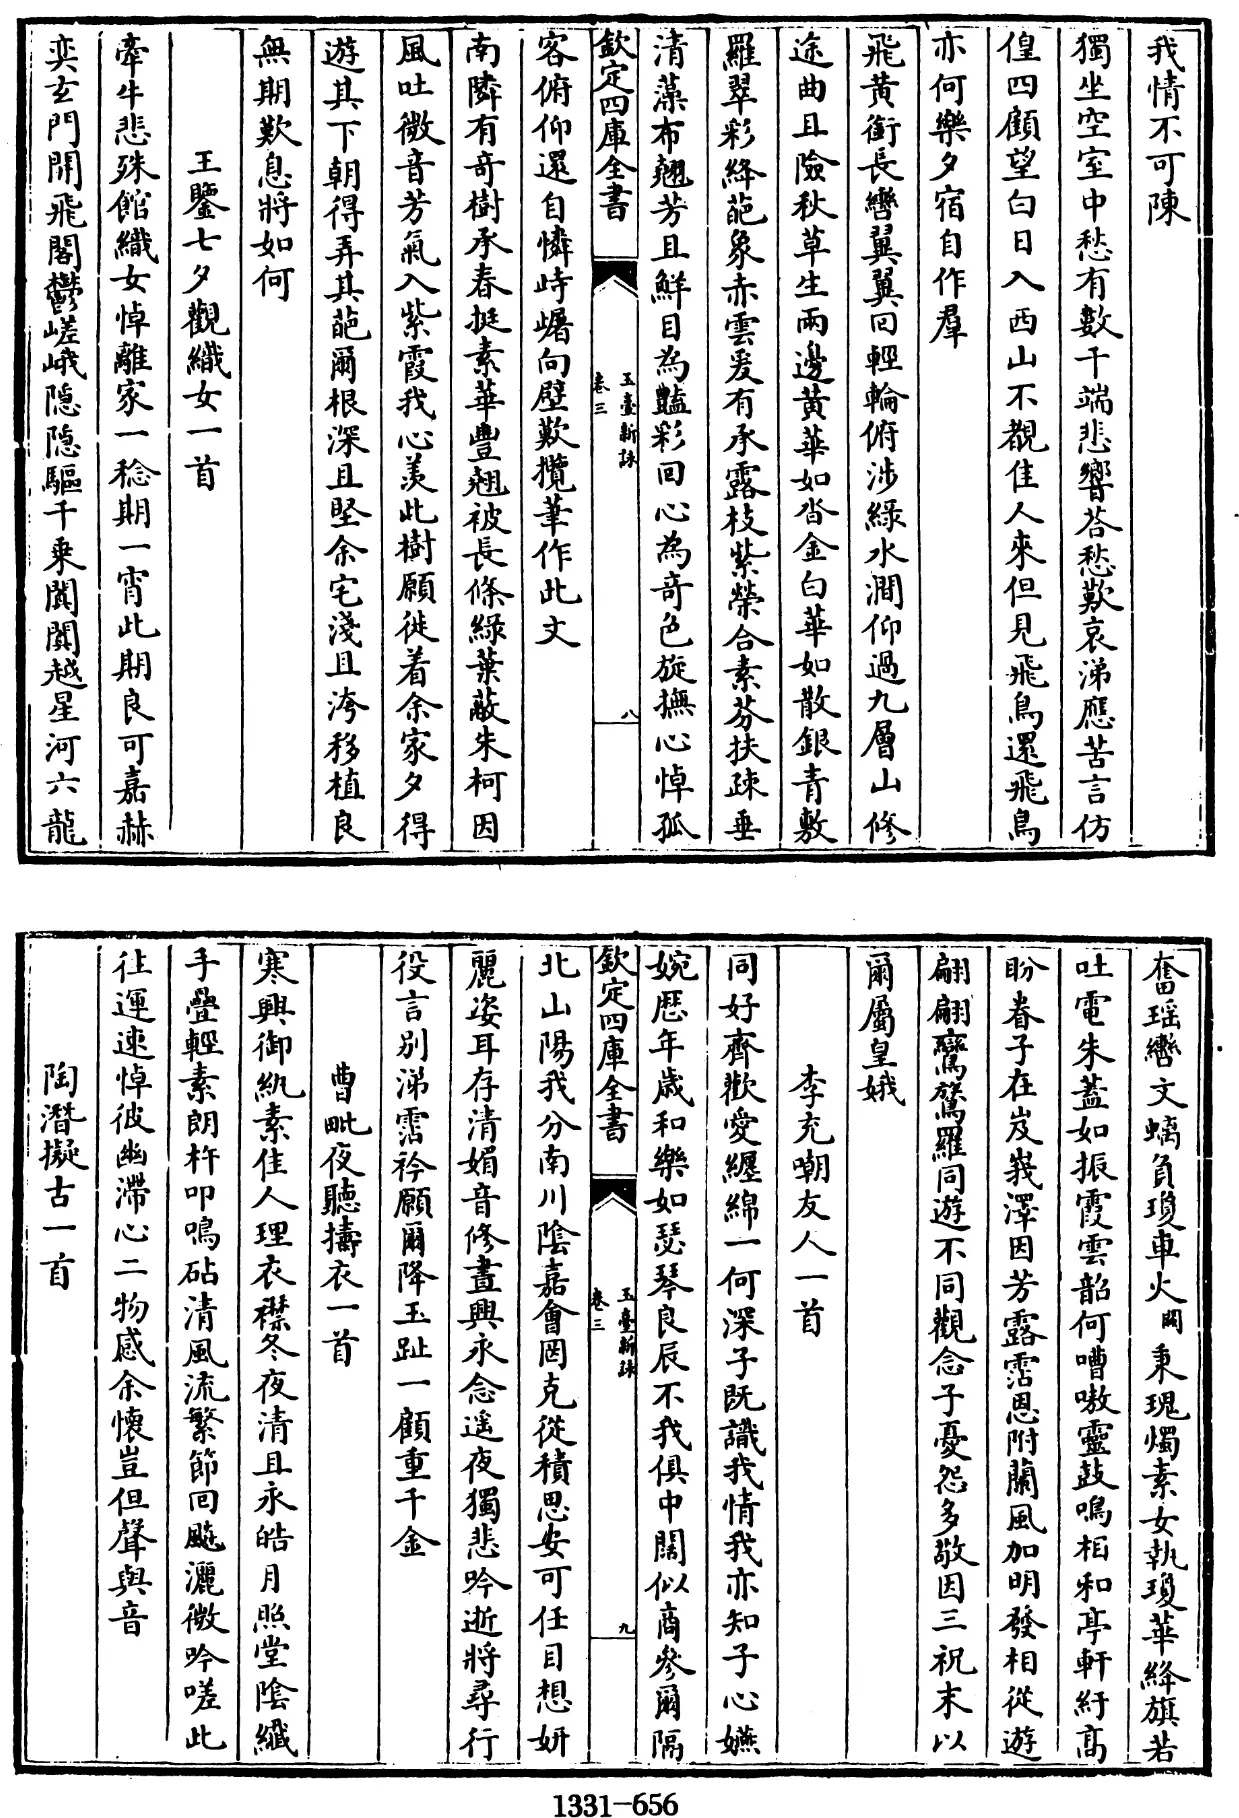 我情不可陳
獨坐空室中愁有數千端悲響荅愁歎哀涕應苦言仿
偟四顧望白日入西山不覩佳人來但見飛鳥還飛鳥
亦何樂夕宿自作羣
飛黃銜長轡翼翼回輕輪俯涉緑水澗仰過九層山修
途曲且險秋草生兩邊黃華如沓金白華如散銀青敷
羅翠彩絳葩象赤雲爰有承露枝紫榮合素芬扶疎垂
清藻布翹芳且鮮目為艷彩回心為奇色旋撫心悼孤
欽定四庫全書
玉臺新詠
卷三
八
客俯仰還自憐峙𡾋向壁歎攬筆作此文
南隣有奇樹承春挺素華豐翹被長條緑葉蔽朱柯因
風吐微音芳氣入紫霞我心羨此樹願徙着余家夕得
遊其下朝得弄其葩爾根深且堅余宅淺且洿移植良
無期歎息將如何
王鑒七夕觀織女一首
牽牛悲殊館織女悼離家一稔期一宵此期良可嘉赫
奕玄門開飛閣鬱嵯峨隐隐驅千乗闐闐越星河六龍
奮瑶轡文螭負瓊車火闕秉瑰燭素女執瓊華絳旗若
吐電朱蓋如振霞雲韶何嘈嗷靈鼓鳴相和亭軒紆高
盼眷子在岌峩澤因芳露霑恩附蘭風加明發相從遊
翩翩鸞鷟羅同遊不同觀念子憂怨多敬因三祝末以
爾屬皇娥
李充嘲友人一首
同好齊歡愛纒綿一何深子既識我情我亦知子心嬿
婉歷年歲和樂如瑟琴良辰不我俱中闊似商參爾隔
欽定四庫全書
玉臺新詠
卷三
九
北山陽我分南川陰嘉會罔克從積思安可任目想妍
麗姿耳存清媚音修晝興永念遥夜獨悲吟逝將尋行
役言别涕霑衿願爾降玉趾一顧重千金
曹毗夜聽擣衣一首
寒興御紈素佳人理衣襟冬夜清且永皓月照堂陰纖
手疊輕素朗杵叩鳴砧清風流繁節回飈灑微吟嗟此
往運速悼彼幽滯心二物感余懷豈但聲與音
陶潛擬古一首
1331-656